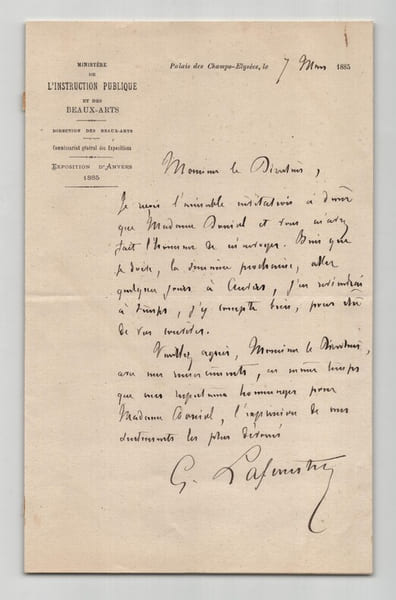 MINISTÈRE
DE
L'INSTRUCTION PUBLIQUE
ET DES
BEAUX-ARTS
DIRECTION DES BEAUX-ARTS
Commissariat général des Expositions
EXPOSITION D'ANVERS
1885
Palais des Champs-Elysées, le 7 Mars 1885
Monsieur le Directeur,
Je reçois l'aimable invitation à dîner
que Madame et vous m'avez
fait l'honneur de m'envoyer. Bien que
je doive, la semaine prochaine, aller
quelques jours à Anvers, j'en reviendrai
à temps, j'y compte bien, pour être
de vos convives.
Veuillez agréer, Monsieur le Directeur,
avec mes remerciements, en même temps
que mes respectueux hommages pour
Madame l'expression de mes
sentiments les plus dévoués
G. Lafenestre